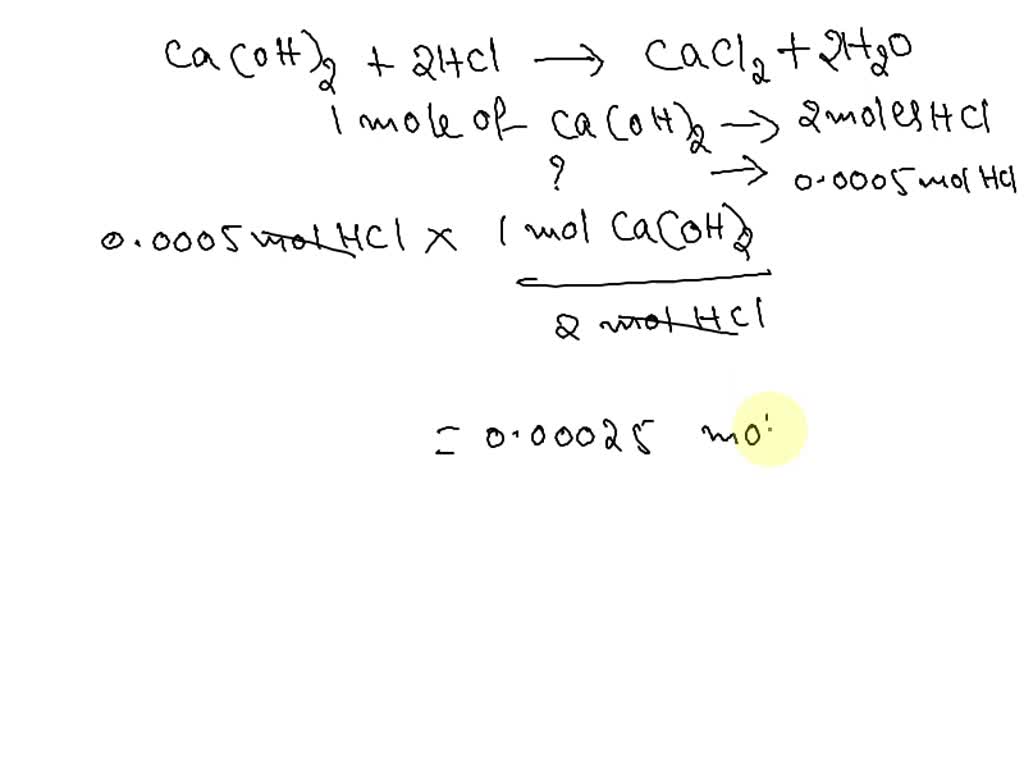 Ca(OH)₂ + 2HCl → CaCl₂ + 2H₂O
1 mole of Ca(OH)₂ → 2 moles HCl
? → 0.0005 mol HCl
0.0005 mol HCl × 1 mol Ca(OH)₂
2 mol HCl
= 0.00025 mo